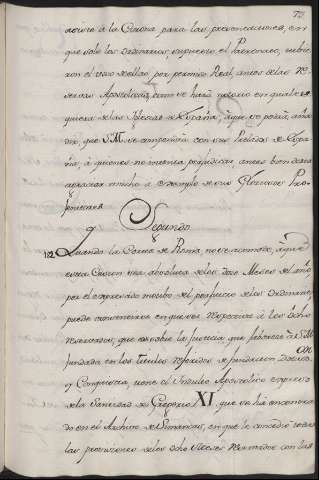 72
asiste à la Corona para las presentaciones, en
que solo los Ordinarios, supuesto el Patronato, tubie-
ron el uso de ellas por permiso Real, antes de las Re-
servas Apostolicas, como se hará notorio en quales-
quiera de las Iglesias de España, à que se podia aña-
dir, que S.M. se compondria con sus Prelados de Espa-
ña, à quienes no intenta perjudicar, antes bien desea
agraciar mucho à exemplo de sus Gloriosos Pro-
genitores.
Segundo
102. Quando la Corte de Roma no se acomode, à que
esta Cesion sea absoluta de los doce Meses del año,
por el expresado motibo del perjuicio de los Ordinarios,
puede convenirse en que sea respectiva à los ocho
reservados, que es sobre la Justicia que favorece à S.M.
fundada en los titulos referidos de fundacion Dotacion
y Conquista, tiene el Indulto Apostolico expreso
de la Santidad de Gregorio XI, que se há encontra-
do en el Archivo de Simancas, en que le concedió todas
las provisiones de los ocho Meses reservados con las